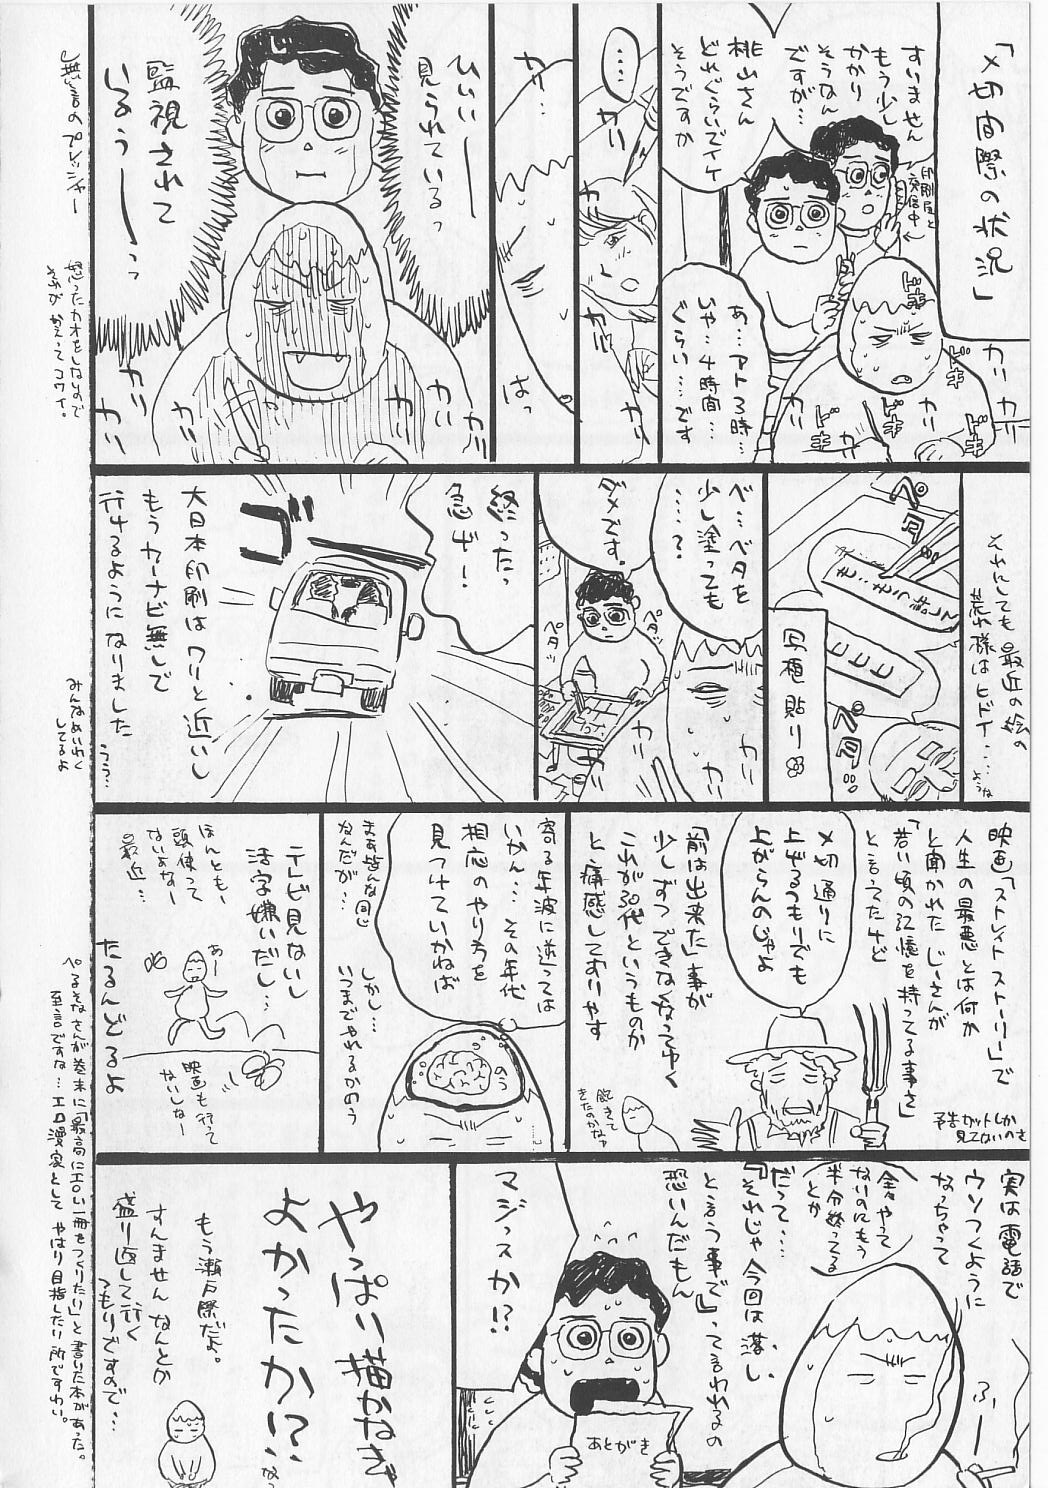 「〆切間際の状況」
すいません
もう少し
かかり
そうなん
ですが…
印刷屋と
交信中
桃山さん
どれぐらいでイケ
そうですか
あ…アト3時…
いや…4時間…
ぐらい…です
ドキ
ドキ
ドキ
ドキ
ドキ
カリ
カリ
カリ
カリ
‥‥
カリ
カリ
カリ
カリ…
はっ
ひいぃー
見られているっ
監視されて
いるぅーーっっ
カリ
カリ
カリ
カリ
カリ
無言のプレッシャー
怒ったカオをしないので
それがかえってコワイ。
それにしても最近の絵の
荒れ様はヒドイ…
ような
ペタ
ペタ
写植貼り
ベ…ベタを
少し塗っても
……?
ダメです。
ペタッ
ペタッ
カリ
カリ
カリ
終ったっ
急げー!
ゴー
大日本印刷はワリと近いし
もうカーナビ無しで
行けるようになりました
うう…
みんなめいわく
してるよ
映画「ストレイトストーリー」で
人生の最悪とは何か
と聞かれたじーさんが
「若い頃の記憶を持ってる事さ」
と言ってたけど
予告カットしか
見てないのさ
〆切通りに
上げるつもりでも
上がらんのじゃよ
「前は出来た」事が
少しずつできなくなってゆく
これが30代というものか
と痛感しておりやす
飽きて
きたのかなァ
寄る年波に逆っては
いかん…その年代
相応のやり方を
見つけていかねば
まぁ皆んな同じ
なんだが…
しかし…
いつまでやれるかのう
のう
テレビ見ないし
活字嫌いだし…
ほんとも、
頭使って
ないよなー
最近…
あー
映画も行って
ないしなー
たるんどるよ
ぺるそなさんが巻末に「最高にエロい一冊をつくりたい」と書いた本があった。
至言ですな…エロ漫家としてやはり目指したい所ですわい。
実は電話で
ウソつくように
なっちゃって
全々やって
ないのにもう
半分終ってる
とか
ふぅー
だって…
『それじゃ今回は落し、
と言う事で』って言われるの
恐いんだもん
マジっスか!?
あとがき
やっぱい描かねぎ
よかったか?
な。
もう瀬戸際だよ。
すんません なんとか
盛り返して行く
つもりですので…